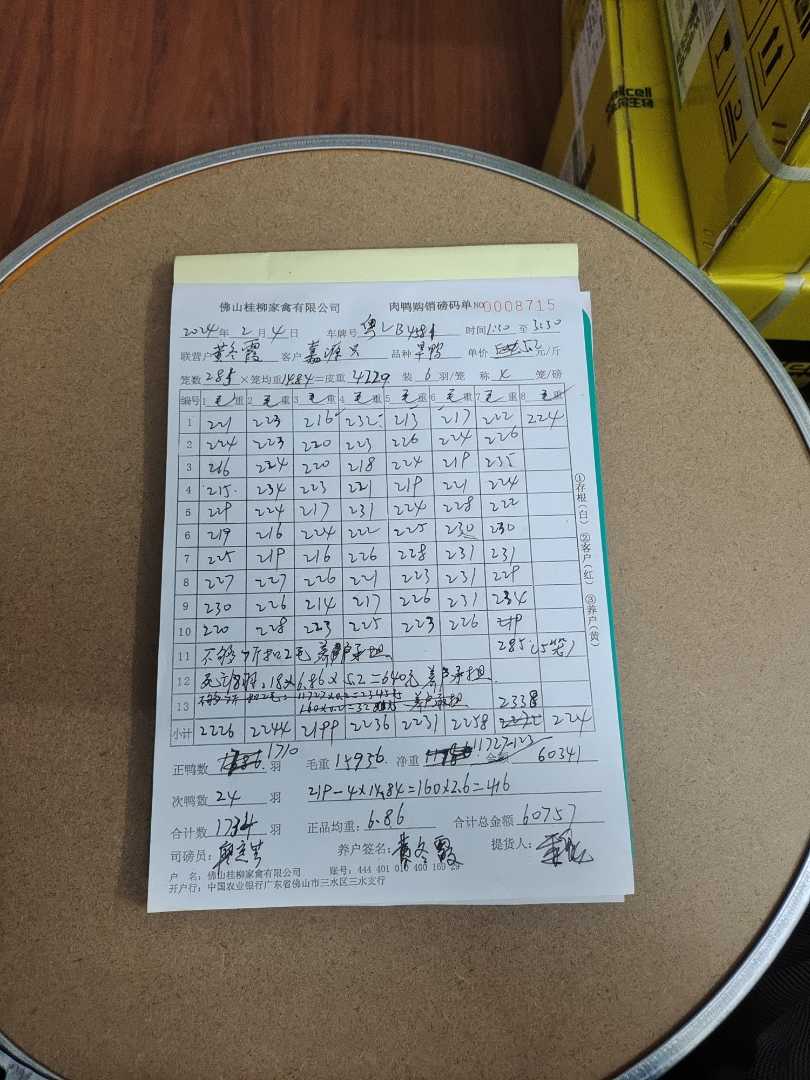 佛山桂柳家禽有限公司 肉鸭购销磅码单 NO 0008715
2024年 2月 4日 车牌号 粤 时间 1:30 至 3:30
联营户 黄冬霞 客户 品种 单价 5.2 元/斤
笼数 285 ×笼均重 14.84 =皮重 4229 装 6 羽/笼 称 笼/磅
编号 1 毛重 2 毛重 3 毛重 4 毛重 5 毛重 6 毛重 7 毛重 8 毛重
1 221 223 216 232 213 217 222 224
2 224 223 220 223 226 224 226
3 216 224 220 218 224 219 235
4 215 234 223 221 219 221 224
5 229 224 217 231 224 228 222
6 219 216 224 222 225 230 230
7 225 219 216 226 228 231 231
8 227 227 226 221 223 231 229
9 230 226 214 217 226 231 234
10 220 228 223 225 223 226
11 不够7斤扣2毛 养户承担 285
12 死亡18只,18×6.86×5.2=640元 养户承担
13 2338
小计 2226 2244 2199 2236 2231 2258 224
正鸭数 1710 羽 毛重 15956 净重 11727 金额 60341
次鸭数 24 羽 219-4×14.84=160×2.6=416
合计数 1734 羽 正品均重: 6.86 合计总金额 60757
司磅员: 养户签名: 黄冬霞 提货人:
户 名: 佛山桂柳家禽有限公司 账号: 444 401 010 400 169 29
开户行: 中国农业银行广东省佛山市三水区三水支行
①存根(白) ②客户(红) ③养户(黄)